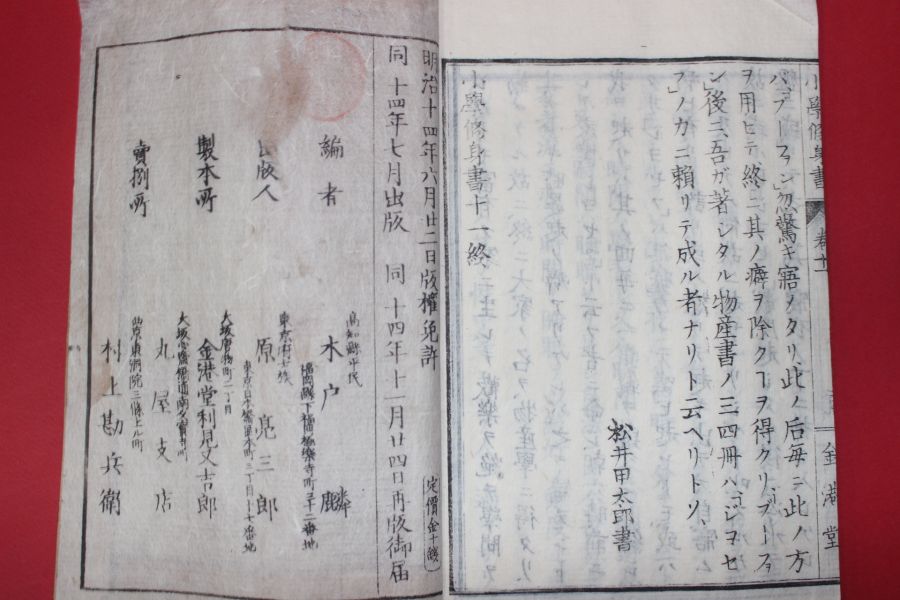 小學修身書 卷十一 金港堂
バ、ブーフ\ァン」忽驚キ寤ノタリ、此ノ后毎ニ此ノ方
ヲ用ヒテ終ニ其ノ癖ヲ除クヿヲ得タリ、ブーフ\ァ
ン」後ニ吾ガ著シタル物産書ノ三四冊ハ、ジヨセ
フ」ノ力ニ頼リテ成ル者ナリト云ヘリトソ、
松井甲太郎書
小學修身書十一終
明治十四年六月廿二日版權免許 (定價金十錢)
同 十四年七月出版 同 十四年十一月廿四日再版御届
高知縣平民
編者 木戸麟
東京府士族
版人 原亮三郎
東京日本橋區本町三丁目十七番地
大坂唐物町二丁目
製本所 金港堂利見文吉郎
賣捌所 丸屋支店
村上勘兵衛